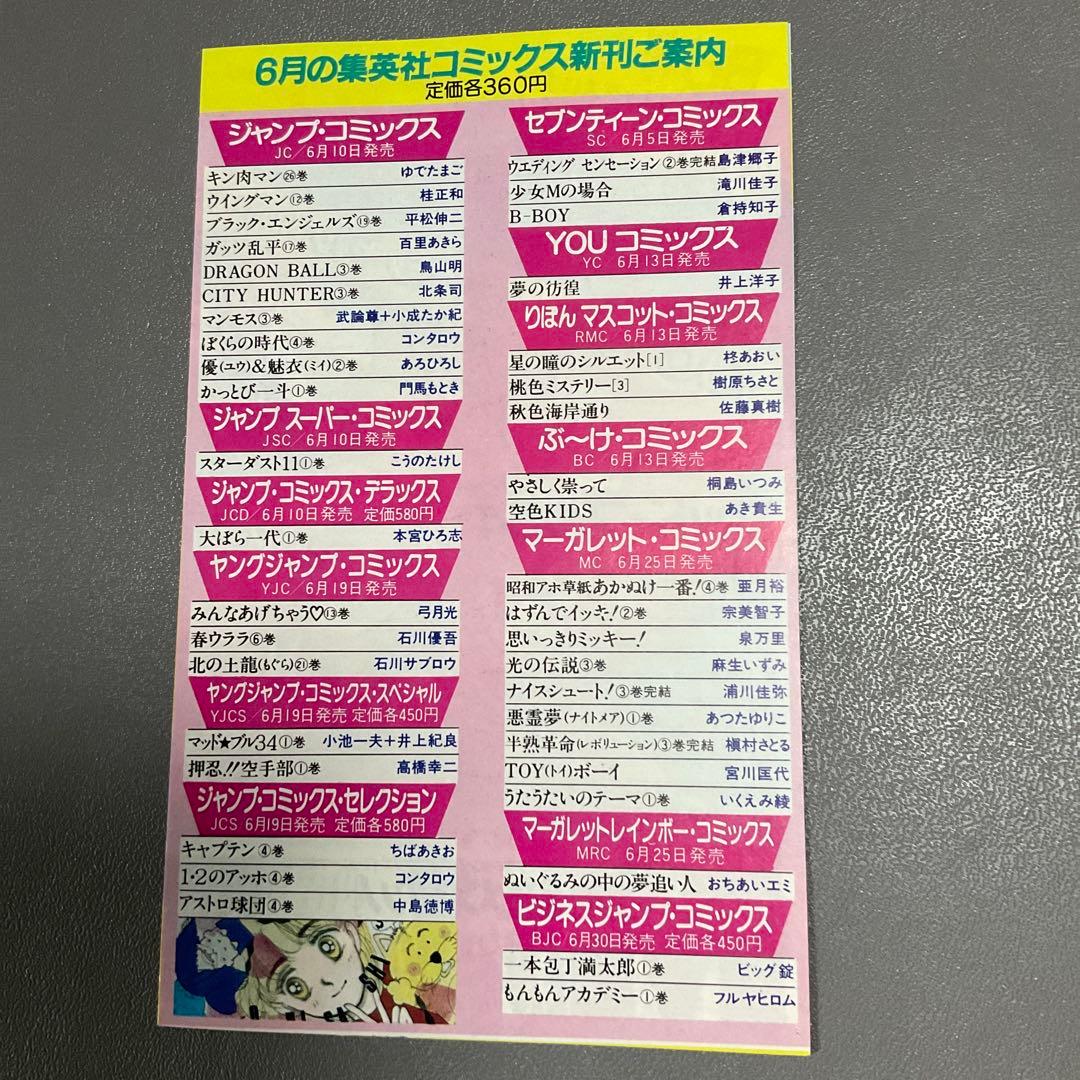 6月の集英社コミックス新刊ご案内
定価各360円
ジャンプ・コミックス
JC/6月10日発売
キン肉マン㉖巻 ゆでたまご
ウイングマン⑫巻 桂正和
ブラック・エンジェルズ⑲巻 平松伸二
ガッツ乱平⑰巻 百里あきら
DRAGON BALL③巻 鳥山明
CITY HUNTER③巻 北条司
マンモス③巻 武論尊+小成たか紀
ぼくらの時代④巻 コンタロウ
優(ユウ)&魅衣(ミイ)②巻 あろひろし
かっとび一斗①巻 門馬もとき
ジャンプ スーパー・コミックス
JSC/6月10日発売
スターダスト11①巻 こうのたけし
ジャンプ・コミックス・デラックス
JCD/6月10日発売 定価580円
大ぼら一代①巻 本宮ひろ志
ヤングジャンプ・コミックス
YJC/6月19日発売
みんなあげちゃう♡⑬巻 弓月光
春ウララ⑥巻 石川優吾
北の土龍(もぐら)㉑巻 石川サブロウ
ヤングジャンプ・コミックス・スペシャル
YJCS/6月19日発売 定価各450円
マッド★ブル34①巻 小池一夫+井上紀良
押忍!!空手部①巻 高橋幸二
ジャンプ・コミックス・セレクション
JCS 6月19日発売 定価各580円
キャプテン④巻 ちばあきお
1・2のアッホ④巻 コンタロウ
アストロ球団④巻 中島徳博
セブンティーン・コミックス
SC/6月5日発売
ウエディング センセーション②巻完結 島津郷子
少女Mの場合 滝川佳子
B-BOY 倉持知子
YOU コミックス
YC 6月13日発売
夢の彷徨 井上洋子
りぼん マスコット・コミックス
RMC/6月13日発売
星の瞳のシルエット[1] 柊あおい
桃色ミステリー[3] 樹原ちさと
秋色海岸通り 佐藤真樹
ぶ〜け・コミックス
BC 6月13日発売
やさしく崇って 桐島いつみ
空色KIDS あき貴生
マーガレット・コミックス
MC/6月25日発売
昭和アホ草紙あかぬけ一番!④巻 亜月裕
はずんでイッキ!②巻 宗美智子
思いっきりミッキー! 泉万里
光の伝説③巻 麻生いずみ
ナイスシュート!③巻完結 浦川佳弥
悪霊夢(ナイトメア)①巻 あつたゆりこ
半熟革命(レボリューション)③巻完結 槇村さとる
TOY(トイ)ボーイ 宮川匡代
うたうたいのテーマ①巻 いくえみ綾
マーガレットレインボー・コミックス
MRC 6月25日発売
ぬいぐるみの中の夢追い人 おちあいエミ
ビジネスジャンプ・コミックス
BJC/6月30日発売 定価各450円
一本包丁満太郎①巻 ビッグ錠
もんもんアカデミー①巻 フルヤヒロム